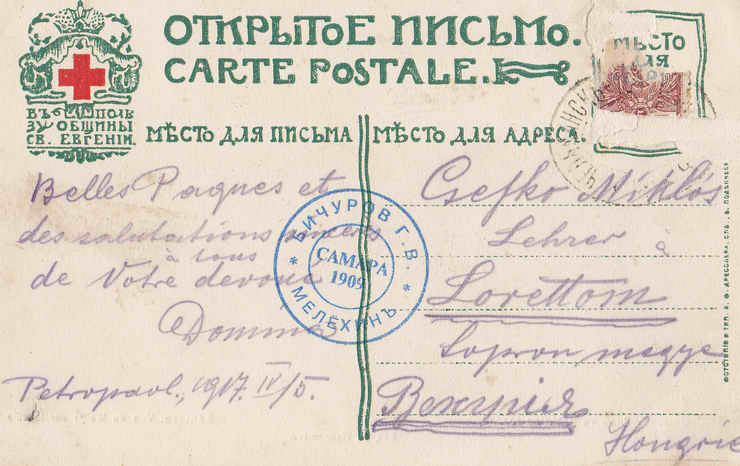 ОТКРЫТОЕ ПИСЬМО.
CARTE POSTALE.
МѢСТО
ДЛЯ
ВЪ ПОЛЬ
ЗУ ОБЩИНЫ
СВ. ЕВГЕНIИ.
МѢСТО ДЛЯ ПИСЬМА
МѢСТО ДЛЯ АДРЕСА.
Belles Paques et
des salutations sincers
à tous
de Votre devoué
Petropavl., 1917. IV/5.
БИЧУРОВ Г. В.
САМАРА
1909
МЕЛЕХИНЪ
Csefko Miklós
Lehrer à
Lorettom
Sopron megye
Венгрія
Hongrie